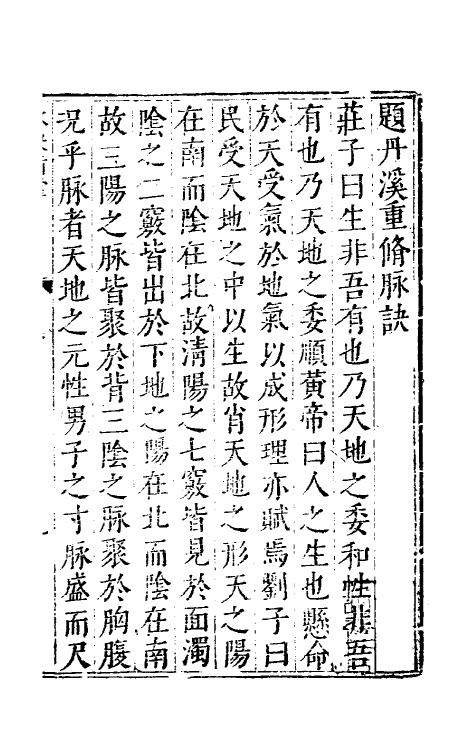 題丹溪重脩脉訣
莊子曰生非吾有也乃天地之委和性非吾
有也乃天地之委順黃帝曰人之生也懸命
於天受氣於地氣以成形理亦賦焉劉子曰
民受天地之中以生故肖天地之形天之陽
在南而陰在北故清陽之七竅皆見於面濁
陰之二竅皆出於下地之陽在北而陰在南
故三陽之脉皆聚於背三陰之脉聚於胸腹
況乎脉者天地之元性男子之寸脉盛而尺